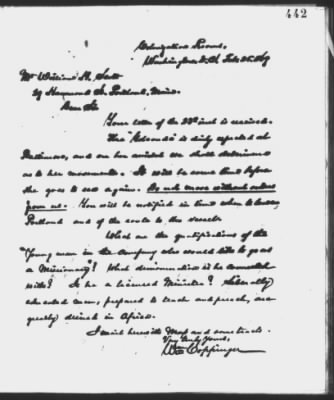 442
Colonization Rooms,
Washington, D.C. Feb. 25, '69
Mr William H. Scott
29 Hammond St. Portland, Maine.
Dear Sir
Your letter of the 22d inst is received.
The "Golconda" is daily expected at
Baltimore, and on her arrival we shall determine
as to her movements. It will be some time before
she goes to sea again. Do not move without orders
from us. You will be notified in time when to leave
Portland and of the route to the vessel.
What are the qualifications of the
"Young man in the Company who would like to go as
a Missionary"? What denomination is he connected
with? Is he a licensed Minister? Liberally
educated men, prepared to teach and preach, are
greatly desired in Africa.
I send herewith Map and some tracts.
Very truly Yours,
Wm Coppinger